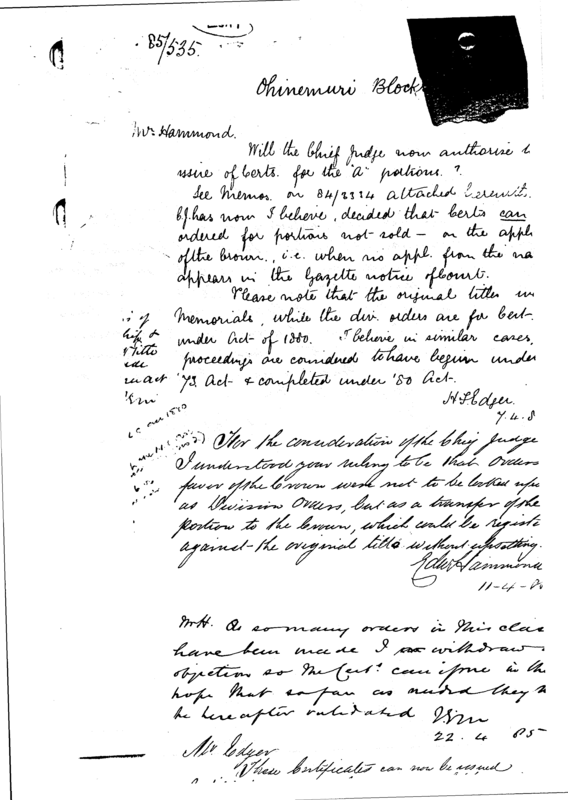 85/535.
Ohinemuri Block
Mr Hammond.
Will the Chief Judge now authorise t
issue of Certs. for the "A" portions?
See Memos. on 84/2334 attached herewit.
CJ. has now I believe, decided that Certs can
ordered for portions not sold — on the appl
of the Crown., i.e. when no appl. from the na
appears in the Gazette notice of Court.
Please note that the original titles
Memorials, while the div. orders are for Cert.
under Act of 1880. I believe in similar cases,
proceedings are considered to have begun under
'73 Act & completed under '80 Act.
H F Edger.
7.4.8
For the consideration of the Chief Judge
I understood your ruling to be that Orders
favor of the Crown were not to be looked upo
as Division Orders, but as a transfer of the
portion to the Crown, which could be registe
against the original title without upsetting.
Edw Hammond
11-4-8
Mr H. As so many orders in this clas
have been made I withdraw
objection so the Certs. can issue in the
hope that so far as needed they
be hereafter validated
22. 4 85
Mr. Edger
These Certificates can now be issued